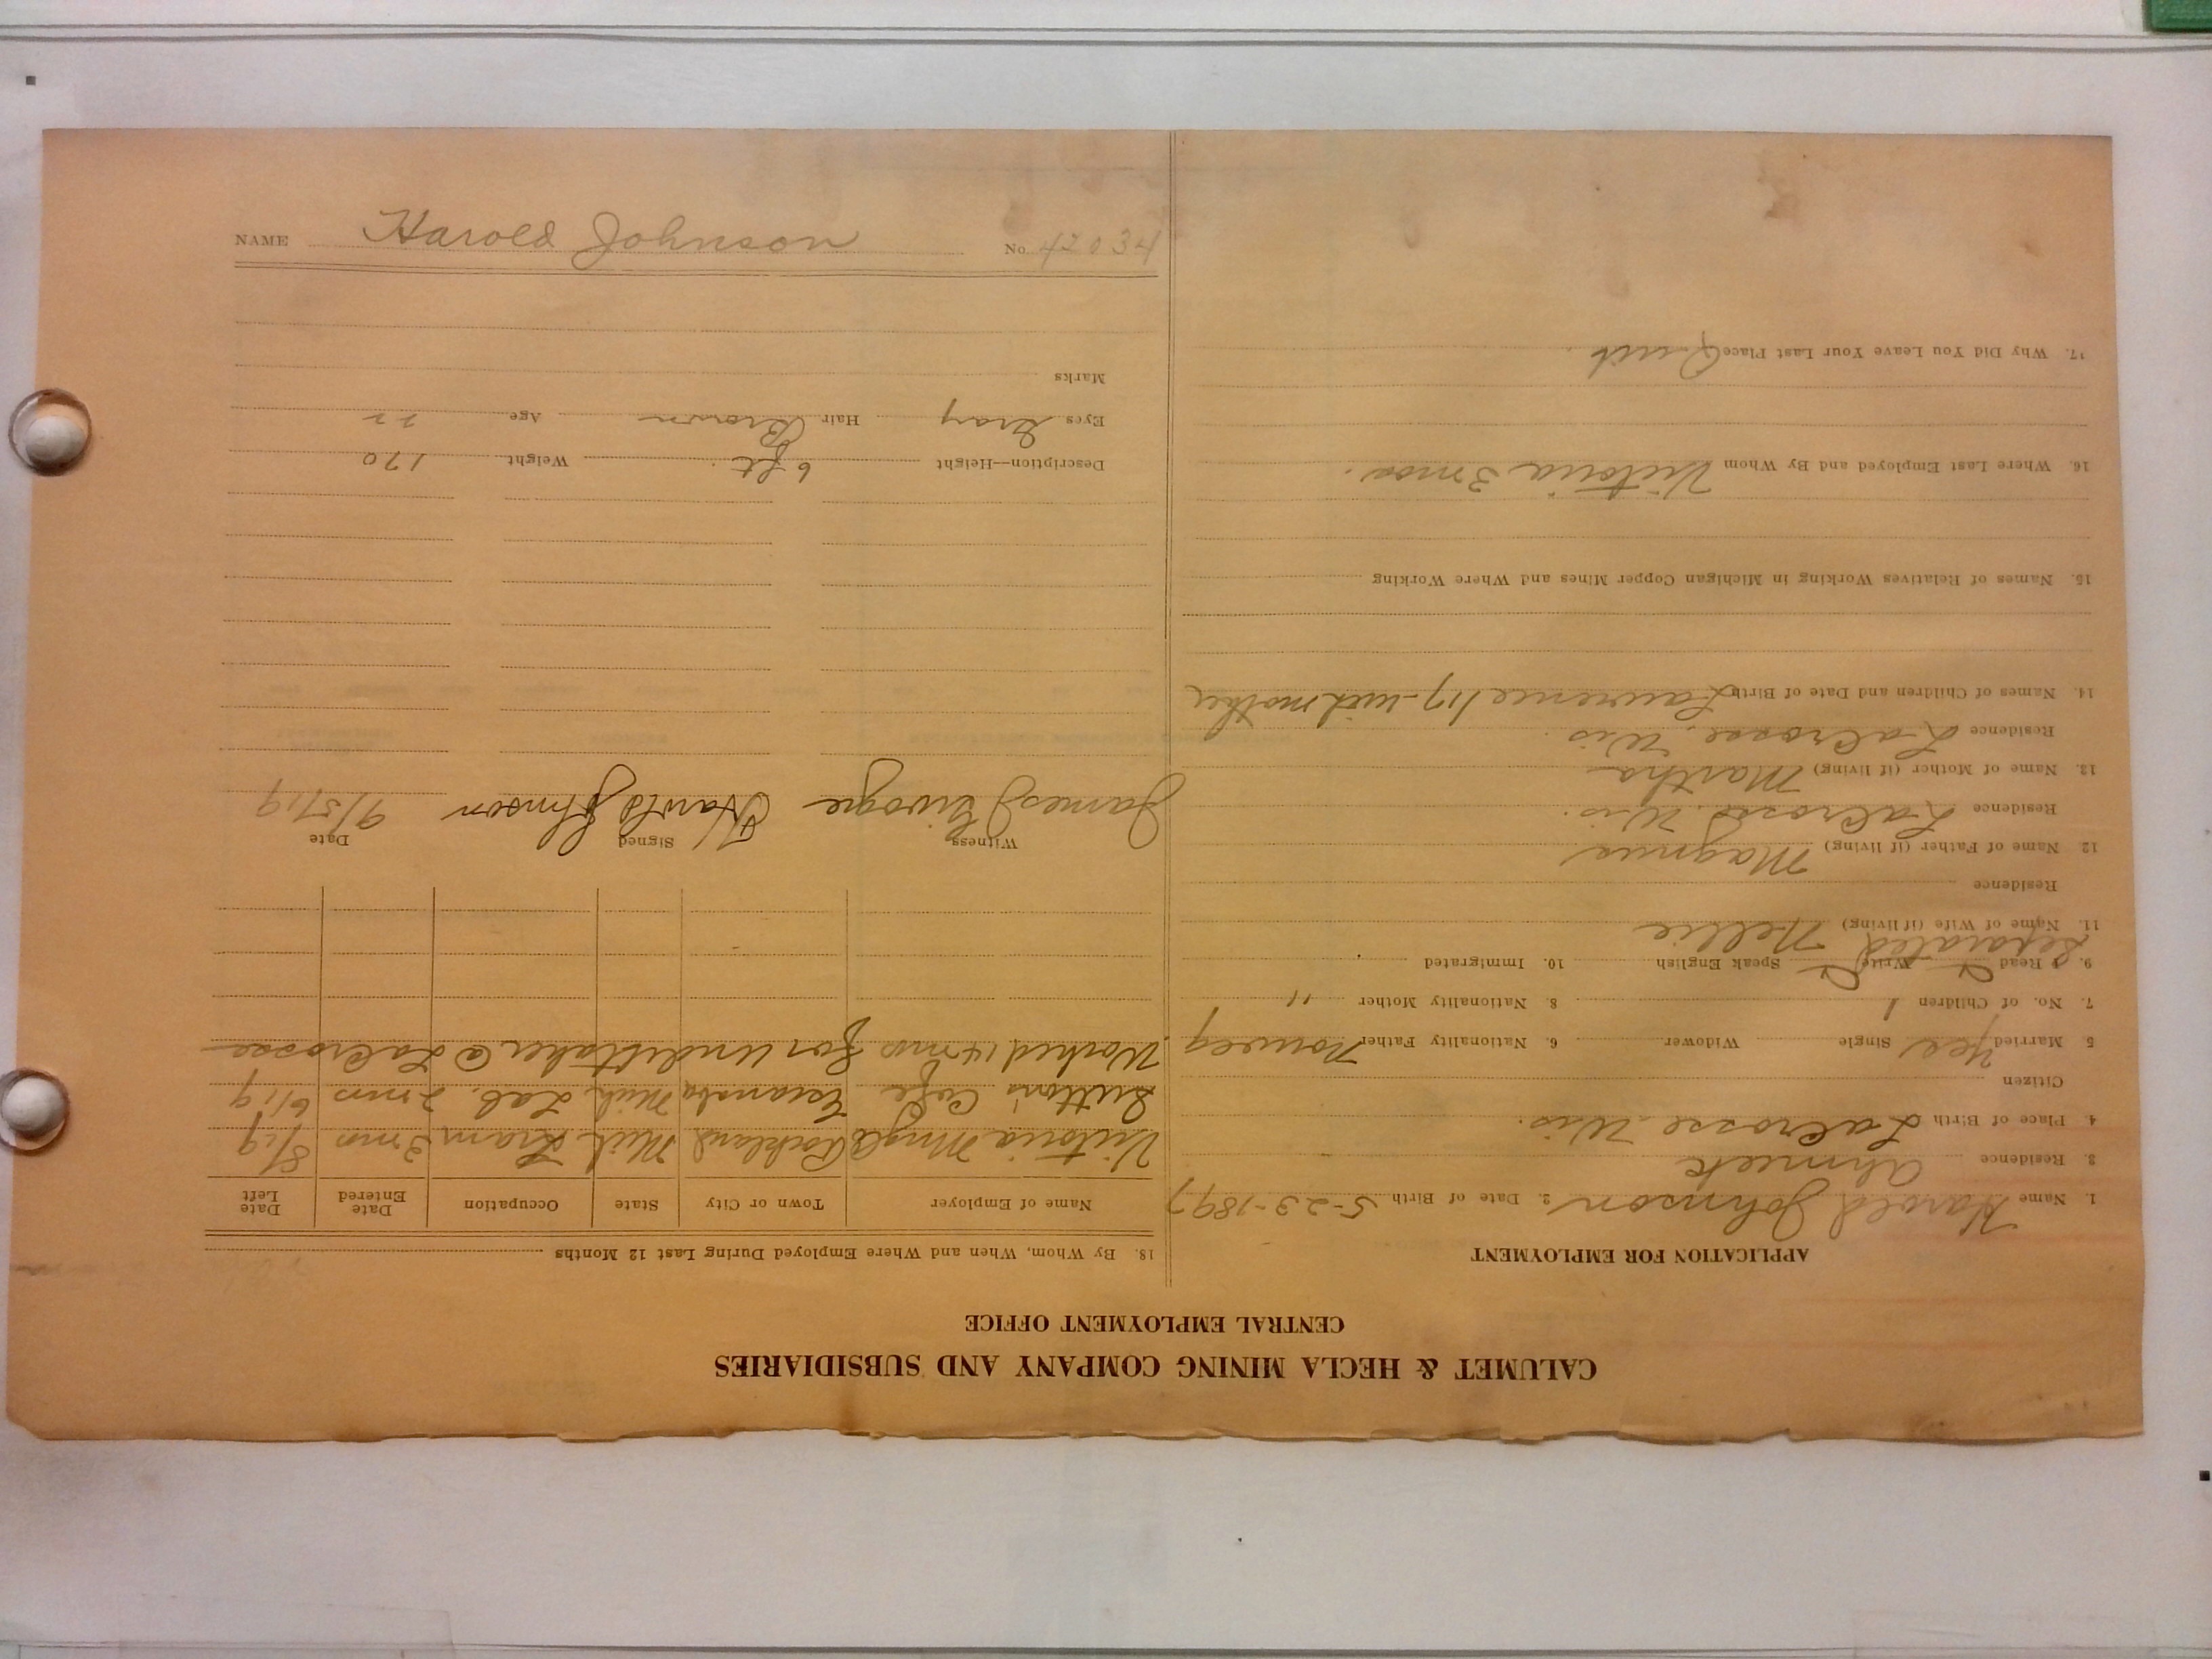 CALUMET & HECLA MINING COMPANY AND SUBSIDIARIES
CENTRAL EMPLOYMENT OFFICE
APPLICATION FOR EMPLOYMENT
1. Name Harold Johnson 2. Date of Birth 5-23-1897
3. Residence Ahmeek
4. Place of Birth LaCrosse Wis.
Citizen
5. Married Yes Single Widower 6. Nationality Father Norweg
7. No. of Children 1 8. Nationality Mother "
9. Read Write Speak English 10. Immigrated
Separated
11. Name of Wife (if living) Nellie
Residence
12. Name of Father (if living) Magnus
Residence LaCrosse, Wis.
13. Name of Mother (if living) Martha
Residence LaCrosse, Wis.
14. Names of Children and Date of Birth Lawrence /17 - with mother
15. Names of Relatives Working in Michigan Copper Mines and Where Working
16. Where Last Employed and By Whom Victoria 3 mos.
17. Why Did You Leave Your Last Place Quit.
18. By Whom, When and Where Employed During Last 12 Months
Name of Employer Town or City State Occupation Date Entered Date Left
Victoria Mng Co Rockland Mich Tram 3 mos 8/19
Cafe Escanaba Mich Lab. 2 mos 6/19
Worked 14 mos for Undertaker @ LaCrosse
Witness Signed Date
James Harold Johnson 9/5/19
Description—Height 6 ft. Weight 170
Eyes Gray Hair Brown Age 22
Marks
NAME Harold Johnson No. 42034